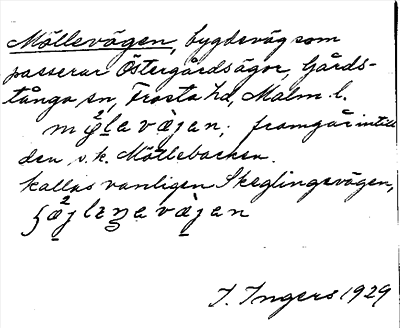 Möllevägen, bygdeväg som
passerar Östergårdsägor, Gårds-
tånga sn, Frosta hd, Malm. l.
framgår intill
den s.k. Möllebacken.
kallas vanligen Skeglingevägen,
I. Ingers 1929